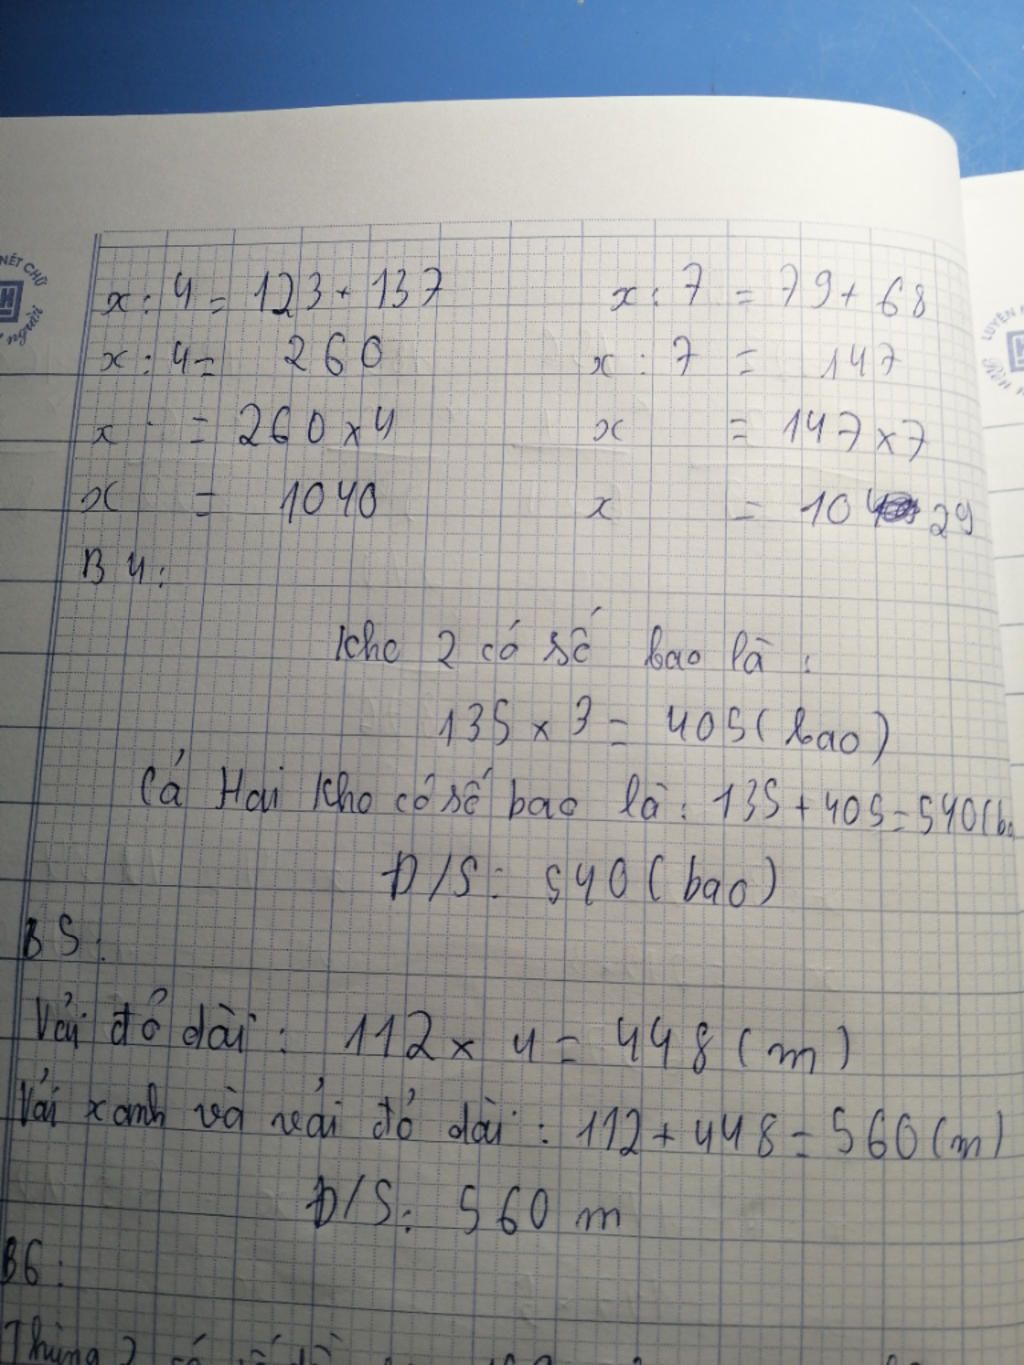 x : 4 = 123 + 137
x : 4 = 260
x = 260 x 4
x = 1040
x : 7 = 79 + 68
x : 7 = 147
x = 147 x 7
x = 1029
B 4:
Kho 2 có số bao là :
135 x 3 = 405 (bao)
Cả Hai kho có số bao là : 135 + 405 = 540 (ba
Đ/S : 540 (bao)
B 5:
Vải đỏ dài : 112 x 4 = 448 (m)
Vải xanh và vải đỏ dài : 112 + 448 = 560 (m)
Đ/S : 560 m
B6 :
Thùng 2 có số
NÉT CHỮ
người
LUYỆN